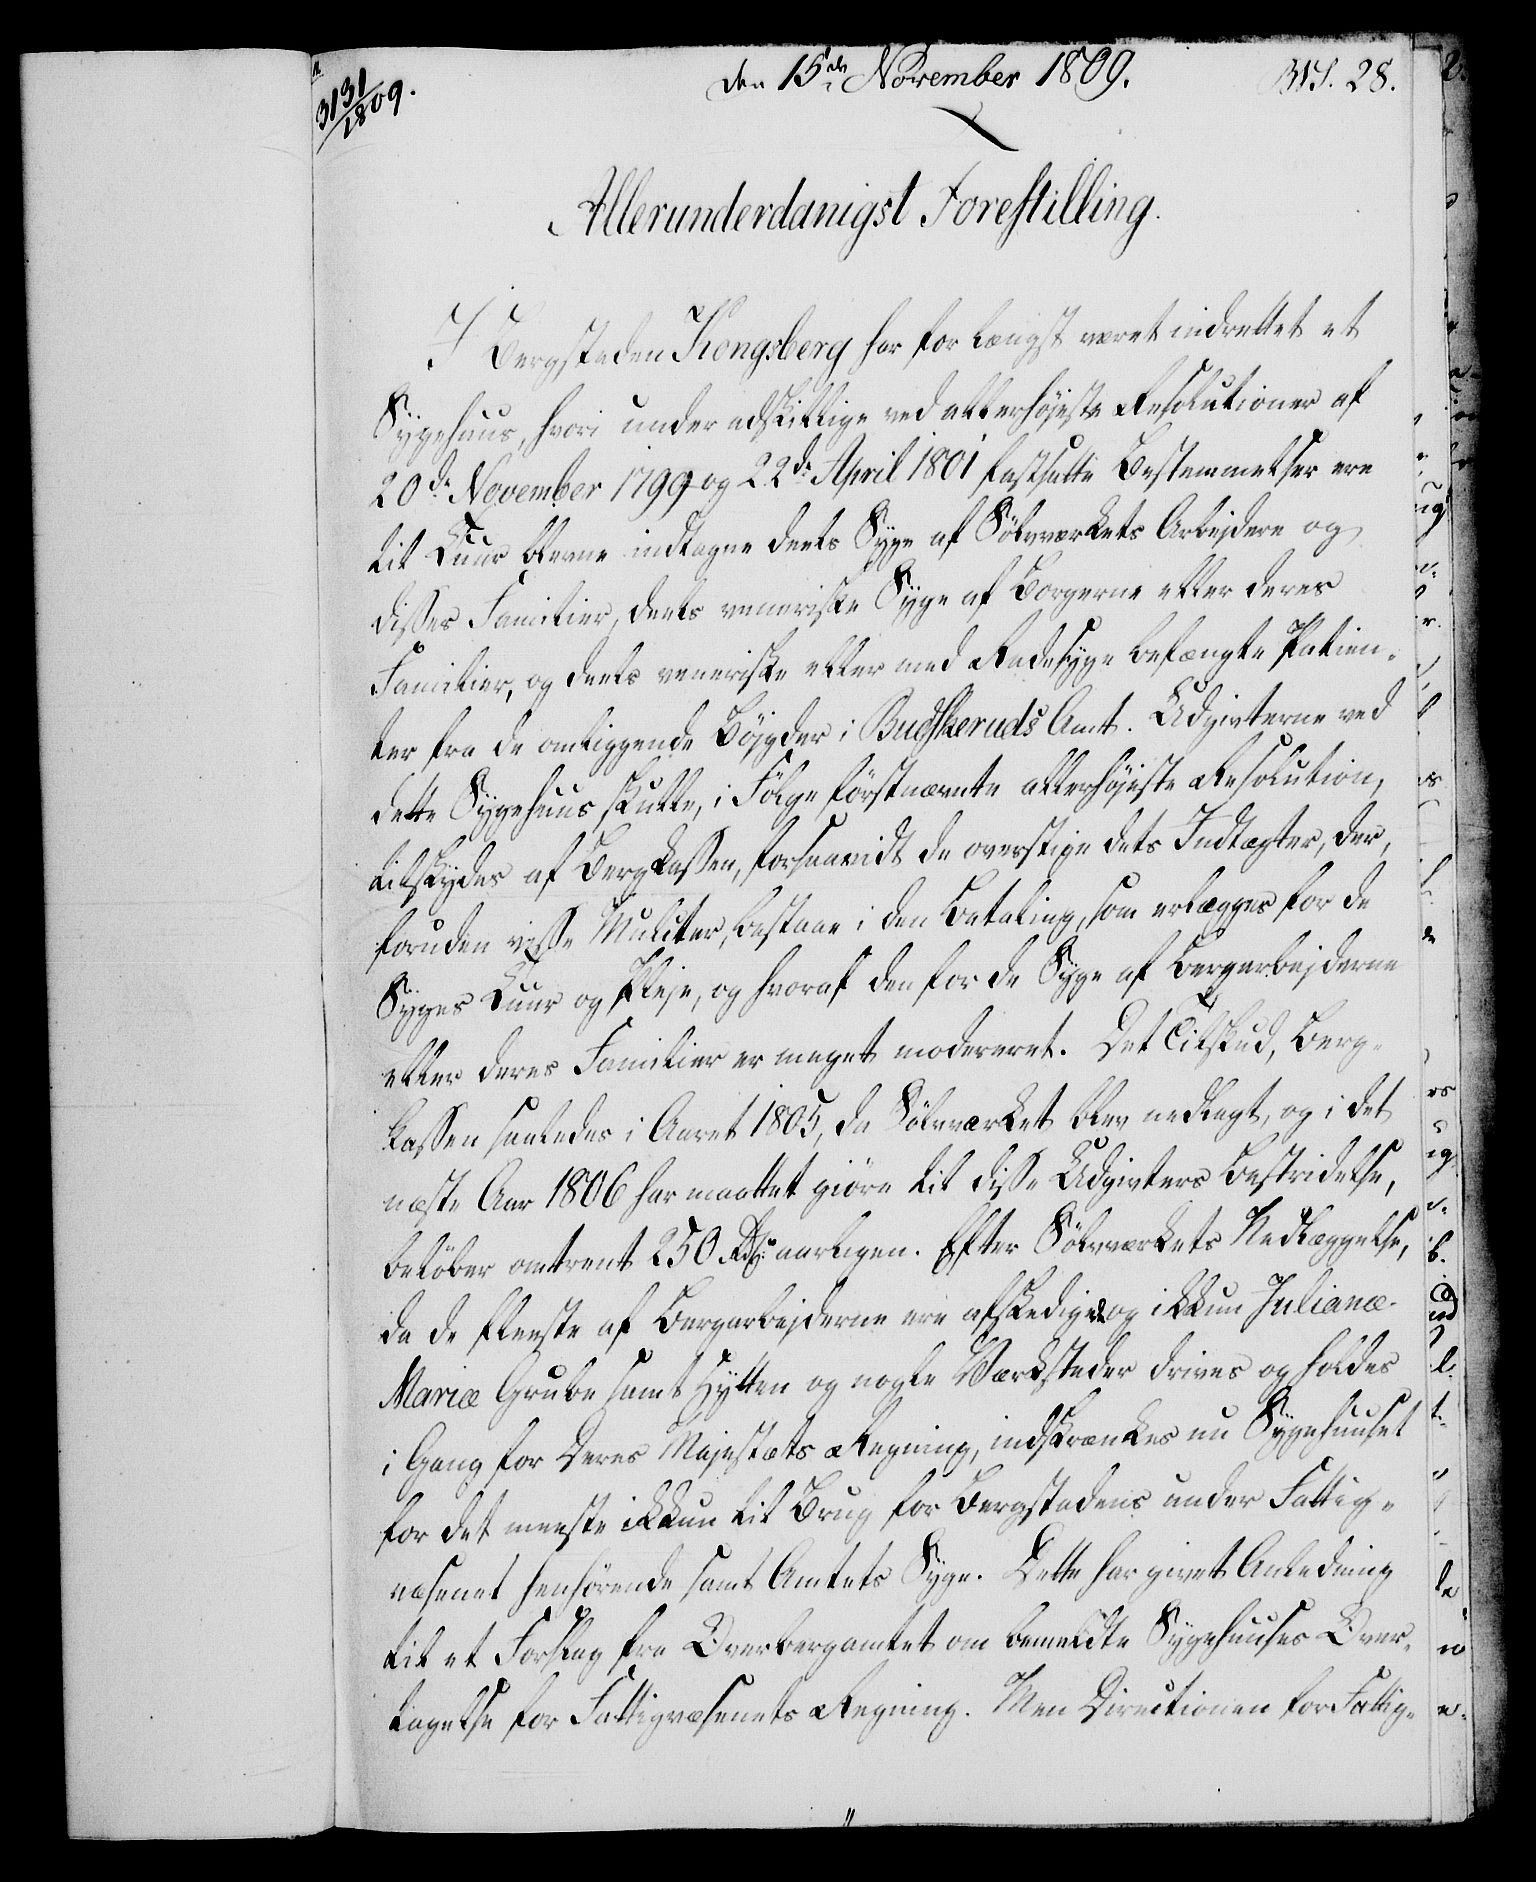 3131/1809.
den 15de November 1809.
315. 28.
Allerunderdanigst Forestilling.
I Bergstaden Kongsberg har for længst været indrettet et
Sygehuus, hvori under adskillige ved allerhøjeste Resolutioner af
20de November 1799 og 22de April 1801 fastsatte Bestemmelser ere
til Cuur blevne indtagne deels Syge af Sølvværkets Arbejdere og
disses Familier, deels veneriske Syge af Borgerne eller deres
Familier, og deels veneriske eller med Radesyge befængte Patien-
ter fra de omliggende Bøjgder i Budskeruds Amt. Udgivterne ved
dette Sygehuus skulle, i Følge førstnævnte allerhøjeste Resolution,
tilskydes af Bergkassen, forsaavidt de overstige dets Indtægter, der,
foruden visse Mulcter, bestaae i den Betaling, som erlægges for de
Syges Cuur og Pleje, og hvoraf den for de Syge af Bergarbejderne
eller deres Familier er meget modereret. Det Tilskud, Berg-
kassen saaledes i Aaret 1805, da Sølvværket blev nedlagt, og i det
næste Aar 1806 har maattet giøre til disse Udgivters Bestridelse,
beløber omtrent 250 Rdr. aarligen. Efter Sølvværkets Nedlæggelse,
da de fleeste af Bergarbejderne ere afskedigede og ikkun Julianæ
Mariæ Grube samt Hytten og nogle Værksteder drives og holdes
i Gang for Deres Majestæts Regning, indskrænkes nu Sygehuuset
for det meeste ikkun til Brug for Bergstadens under Fattig-
væsenet henhørende samt Amtets Syge. Dette har givet Anledning
til et Forslag fra Overbergamtet om bemeldte Sygehuuses Over-
tagelse for Fattigvæsenets Regning. Men Directionen for Fattig-